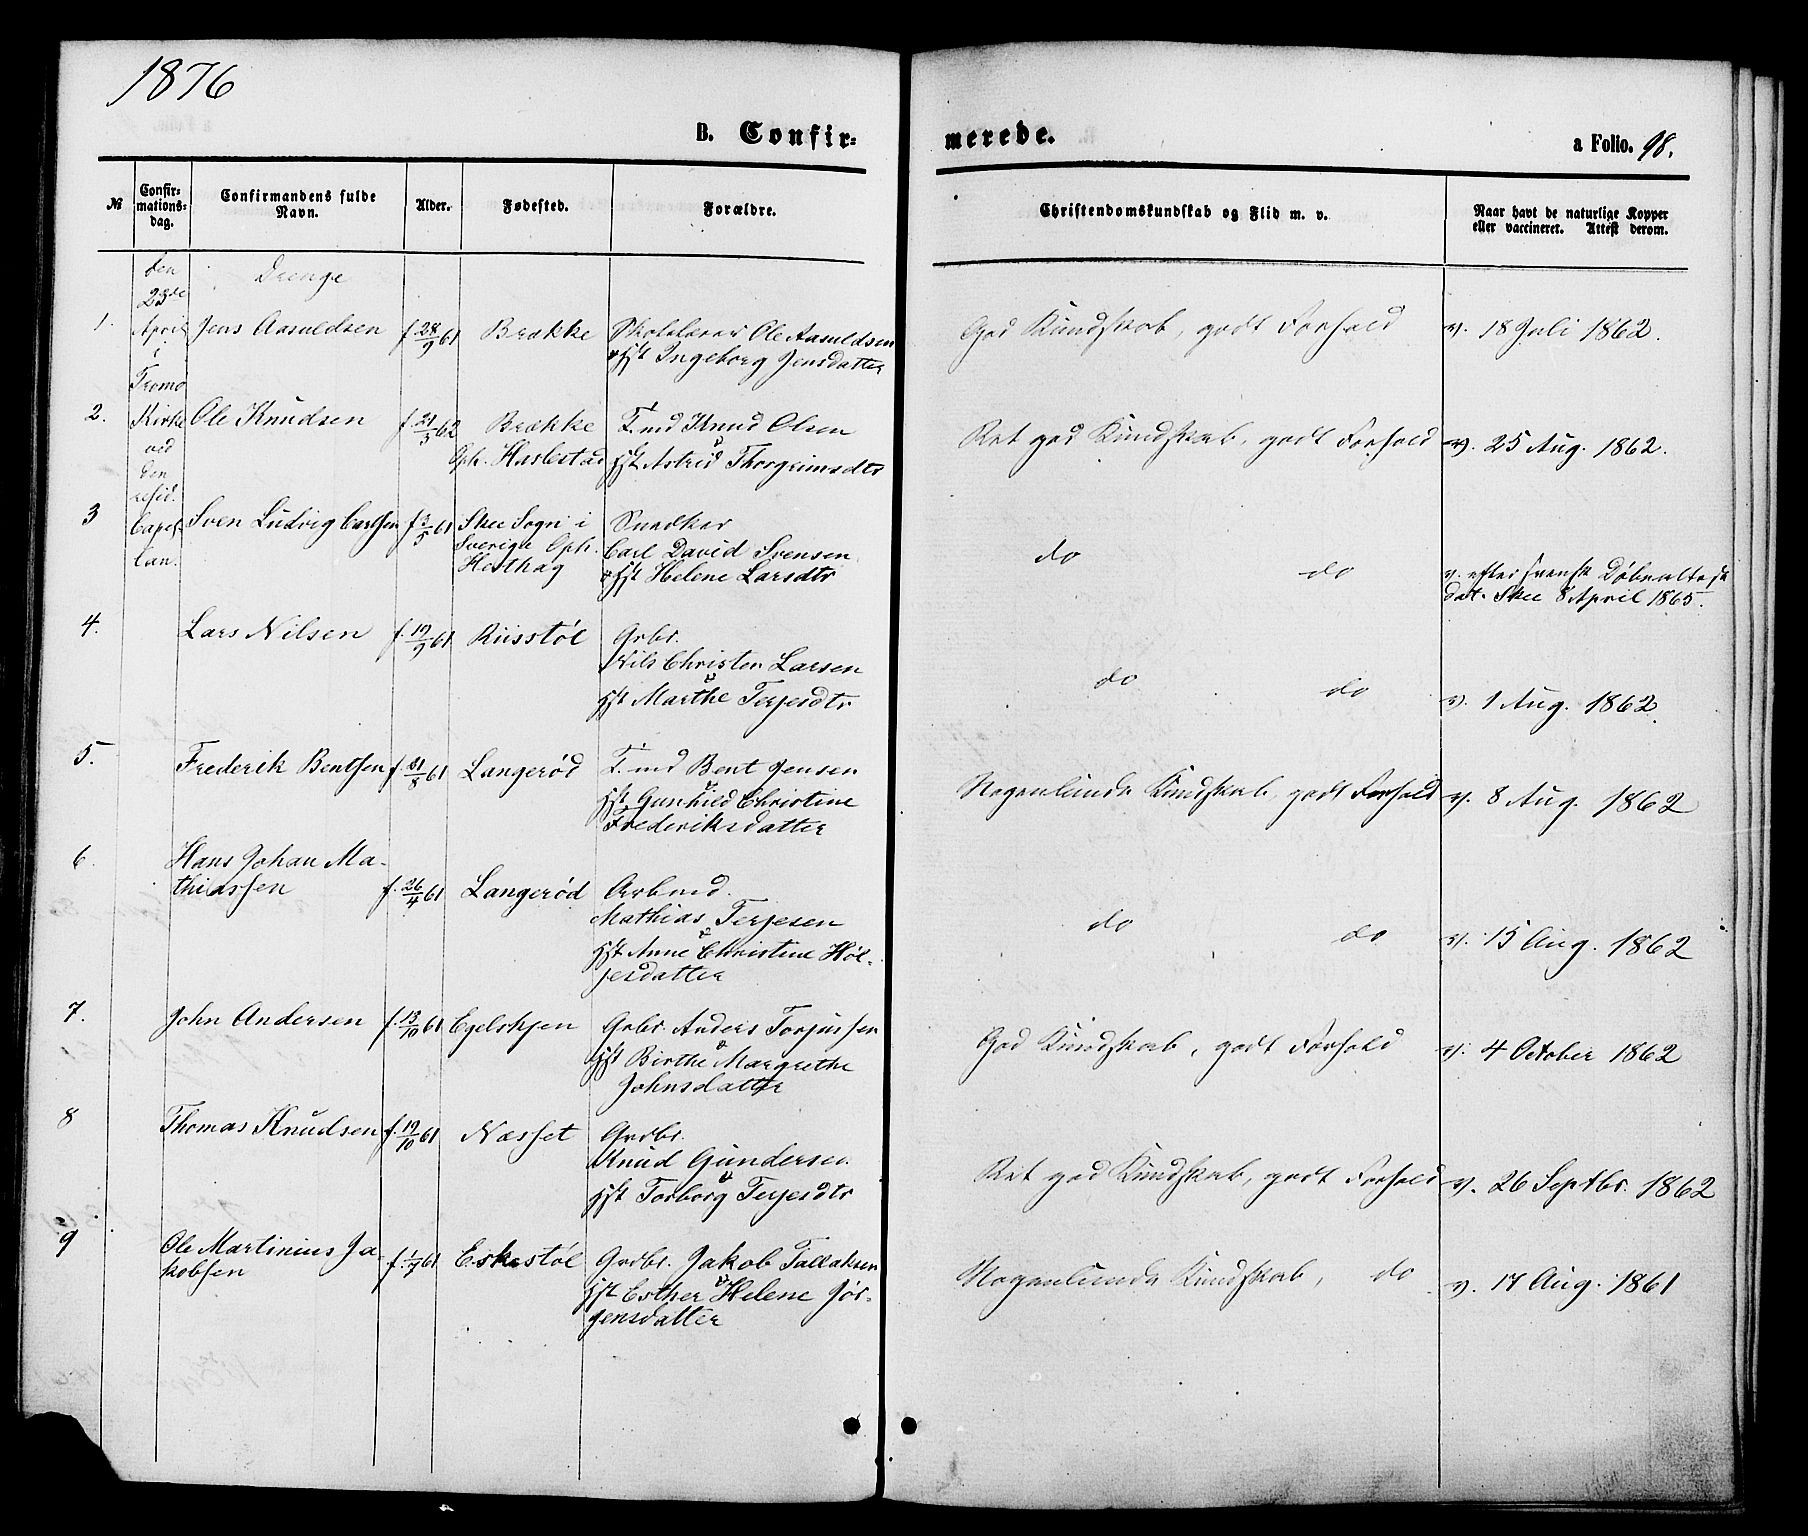 1876
B. Confir-
merede.
a Folio. 98.
№
Confir-
mations-
dag.
Confirmandens fulde
Navn.
Alder.
Fødested.
Forældre.
Christendomskundskab og Flid m. v.
Naar havt de naturlige Kopper
eller vaccineret. Attest derom.
den
23de
April
i
Tromø
Kirke
ved
den
resid.
Capel-
lan.
Drenge
1. Jens Aasuldsen f. 28/9 61 Brække Skolelærer Ole Aasuldsen
Hst Ingeborg Jensdatter
God Kundskab, godt Forhold v. 18 Juli 1862.
2. Ole Knudsen f. 21/3 62 Brække
Oph. Haslestad
T. md Knud Olsen
Hst Astrid Thorgrimsdtr
Ret god Kundskab, godt Forhold v. 25 Aug. 1862.
3 Sven Ludvig Carlsen f. 3/5 61 Skee Sogn i
Sverige Oph.
Hesthag
Snedker
Carl David Svensen
Hst Helene Larsdtr
do do v. efter svensk Døbeattest
dat. Skee 8 April 1865.
4. Lars Nilsen f. 19/9 61 Riisstøl Grbr.
Nils Christen Larsen
&
Hst Marthe Terjesdtr
do do v. 1 Aug. 1862.
5. Frederik Bentsen f. 31/8 61 Langerød T. md Bent Jensen
&
Hst Gunhild Christine
Frederiksdatter
Nogenlunde Kundskab, godt Forhold v. 8 Aug. 1862
6. Hans Johan Ma-
thiassen f. 26/4 61 Langerød Arbmd.
Mathias Terjesen
&
Hst Anne Christine Høl-
jesdatter
do do v. 15 Aug. 1862
7. John Andersen f. 13/10 61 Egelskjen Grbr. Anders Torjussen
&
Hst Birthe Margrethe
Johnsdatter
God Kundskab, godt Forhold v. 4 October 1862
8 Thomas Knudsen f. 19/10 61 Næsset Grdbr.
Knud Gundersen
&
Hst Torborg Terjesdtr
Ret god Kundskab, godt Forhold v. 26 Septbr. 1862
9 Ole Martinius Ja-
kobsen f. 1/7 61 Eskestøl Grdbr. Jakob Tallaksen
&
Hst Esther Helene Jør-
gensdatter
Nogenlunde Kundskab, do v. 17 Aug. 1861